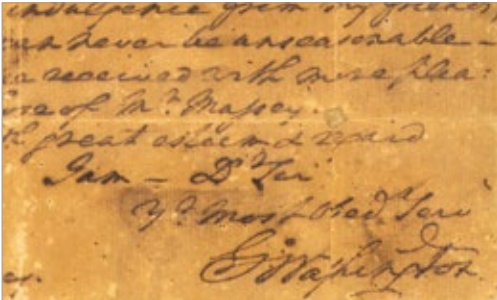 indulgence from my friends
can never be unseasonable –
received with more plea:
of Mr. Massey.
great esteem & regard
I am – Dr Sir
Yr. Most Obedt. Serv
Go Washington